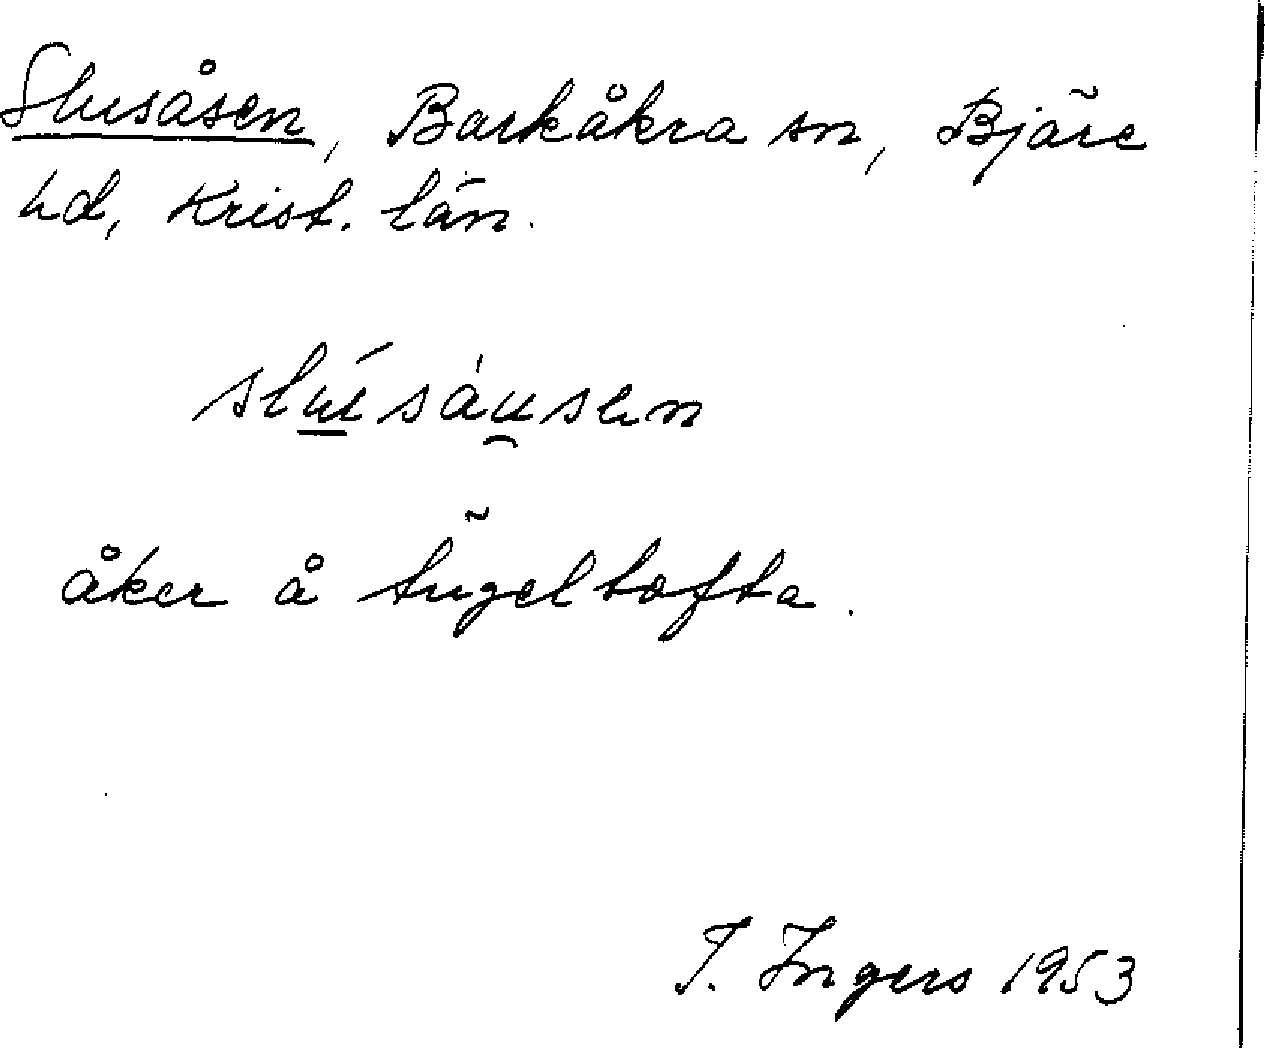 Slusåsen, Barkåkra sn, Bjäre
hd, Krist. län.
slúsàusen
åker å Ängeltofta.
I. Ingers 1953